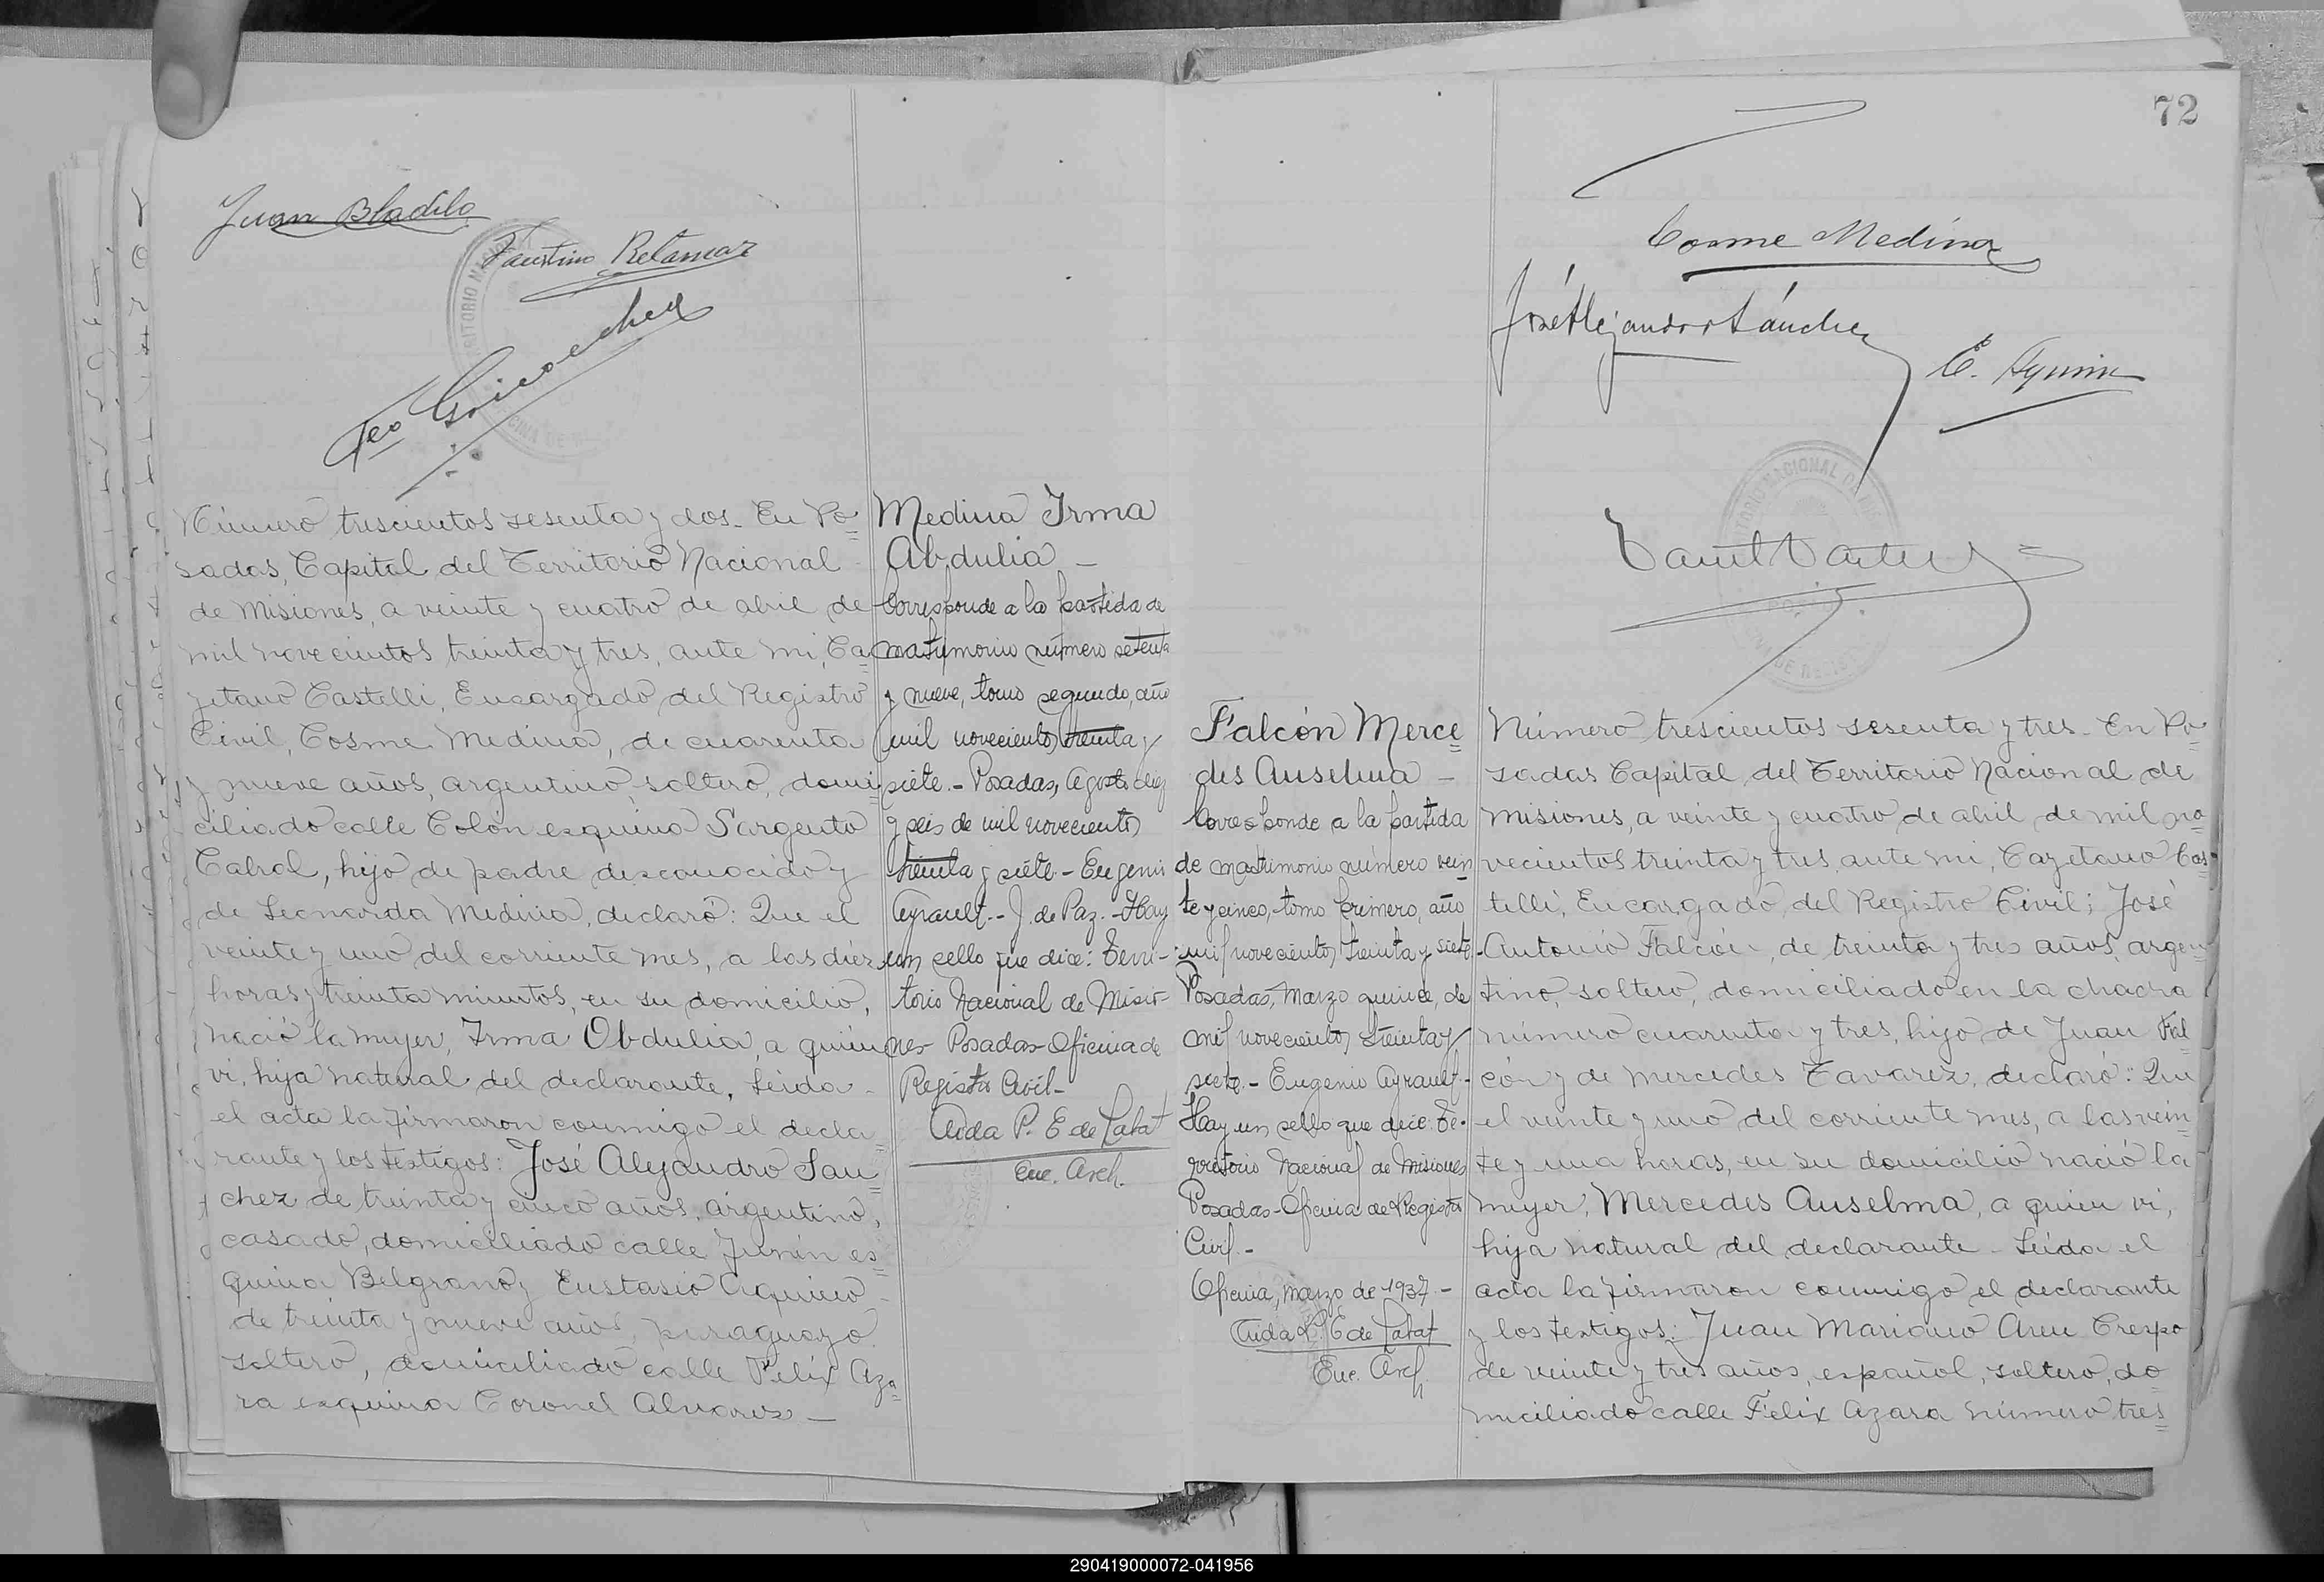 Juan Bladilo
Faustino Retamar
Número trescientos sesenta y dos. En Po=
sadas, Capital del Territorio Nacional
de Misiones, a veinte y cuatro de abril de
mil novecientos treinta y tres, ante mi, Ca=
yetano Castelli, Encargado del Registro
Civil, Cosme Medina, de cuarenta
y nueve años, argentino, soltero, domi=
ciliado calle Colón esquina Sargento
Cabral, hijo de padre desconocido y
de Leonarda Medina, declaró: Que el
veinte y uno del corriente mes, a las diéz
horas y treinta minutos, en su domicilio,
nació la mujer, Irma Obdulia, a quien
vi, hija natural del declarante. Leida
el acta la firmaron conmigo el decla=
rante y los testigos: José Alejandro San=
chez de treinta y cinco años, argentino,
casado, domiciliado calle Junín es=
quina Belgrano y Eustasio Aquino
de treinta y nueve años, paraguayo
soltero, domiciliado calle Félix Aza=
ra esquina Coronel Alvarez —
Medina Irma
Abdulia —
Corresponde a la partida de
matrimonio número setenta
y nueve, tomo segundo, año
mil novecientos treinta y
siete.- Posadas, Agosto diez
y seis de mil novecientos
treinta y siete - Eugenio
Ayrault.- J. de Paz.- Hay
un sello que dice: Terri-
torio Nacional de Misio-
nes - Posadas - Oficina de
Registro Civil -
Aida P. E de Labat
Enc. Arch.
72
Cosme Medina
José Alejandro Sánchez
E. Aquino
Falcón Merce=
des Anselma —
Corresponde a la partida
de matrimonio número vein=
te y cinco, tomo primero, año
mil novecientos treinta y siete.
Posadas, Marzo quince, de
mil novecientos treinta y
siete.- Eugenio Ayrault.-
Hay un sello que dice: Te-
rritorio Nacional de Misiones
Posadas - Oficina de Registro
Civil.-
Oficina, marzo de 1937.-
Aida P. E de Labat
Enc. Arch.
Número trescientos sesenta y tres. En Po=
sadas Capital del Territorio Nacional de
Misiones, a veinte y cuatro de abril de mil no=
vecientos treinta y tres, ante mi, Cayetano Cas=
telli, Encargado del Registro Civil; José
Antonio Falcón, de treinta y tres años, argen=
tino, soltero, domiciliado en la chacra
número cuarenta y tres, hijo de Juan Fal=
cón y de Mercedes Tavarez, declaró: Que
el veinte y uno del corriente mes, a las vein=
te y una horas, en su domicilio nació la
mujer, Mercedes Anselma, a quien vi,
hija natural del declarante. Leida el
acta la firmaron conmigo el declarante
y los testigos: Juan Mariano Crespo
de veinte y tres años, español, soltero, do=
miciliado calle Félix Azara número tres=
290419000072-041956